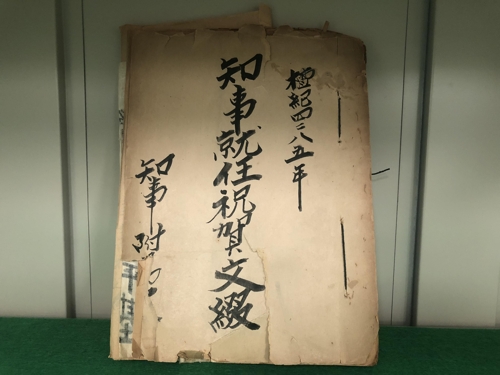 檀紀四二八五年
知事就任祝賀文綴
知事附